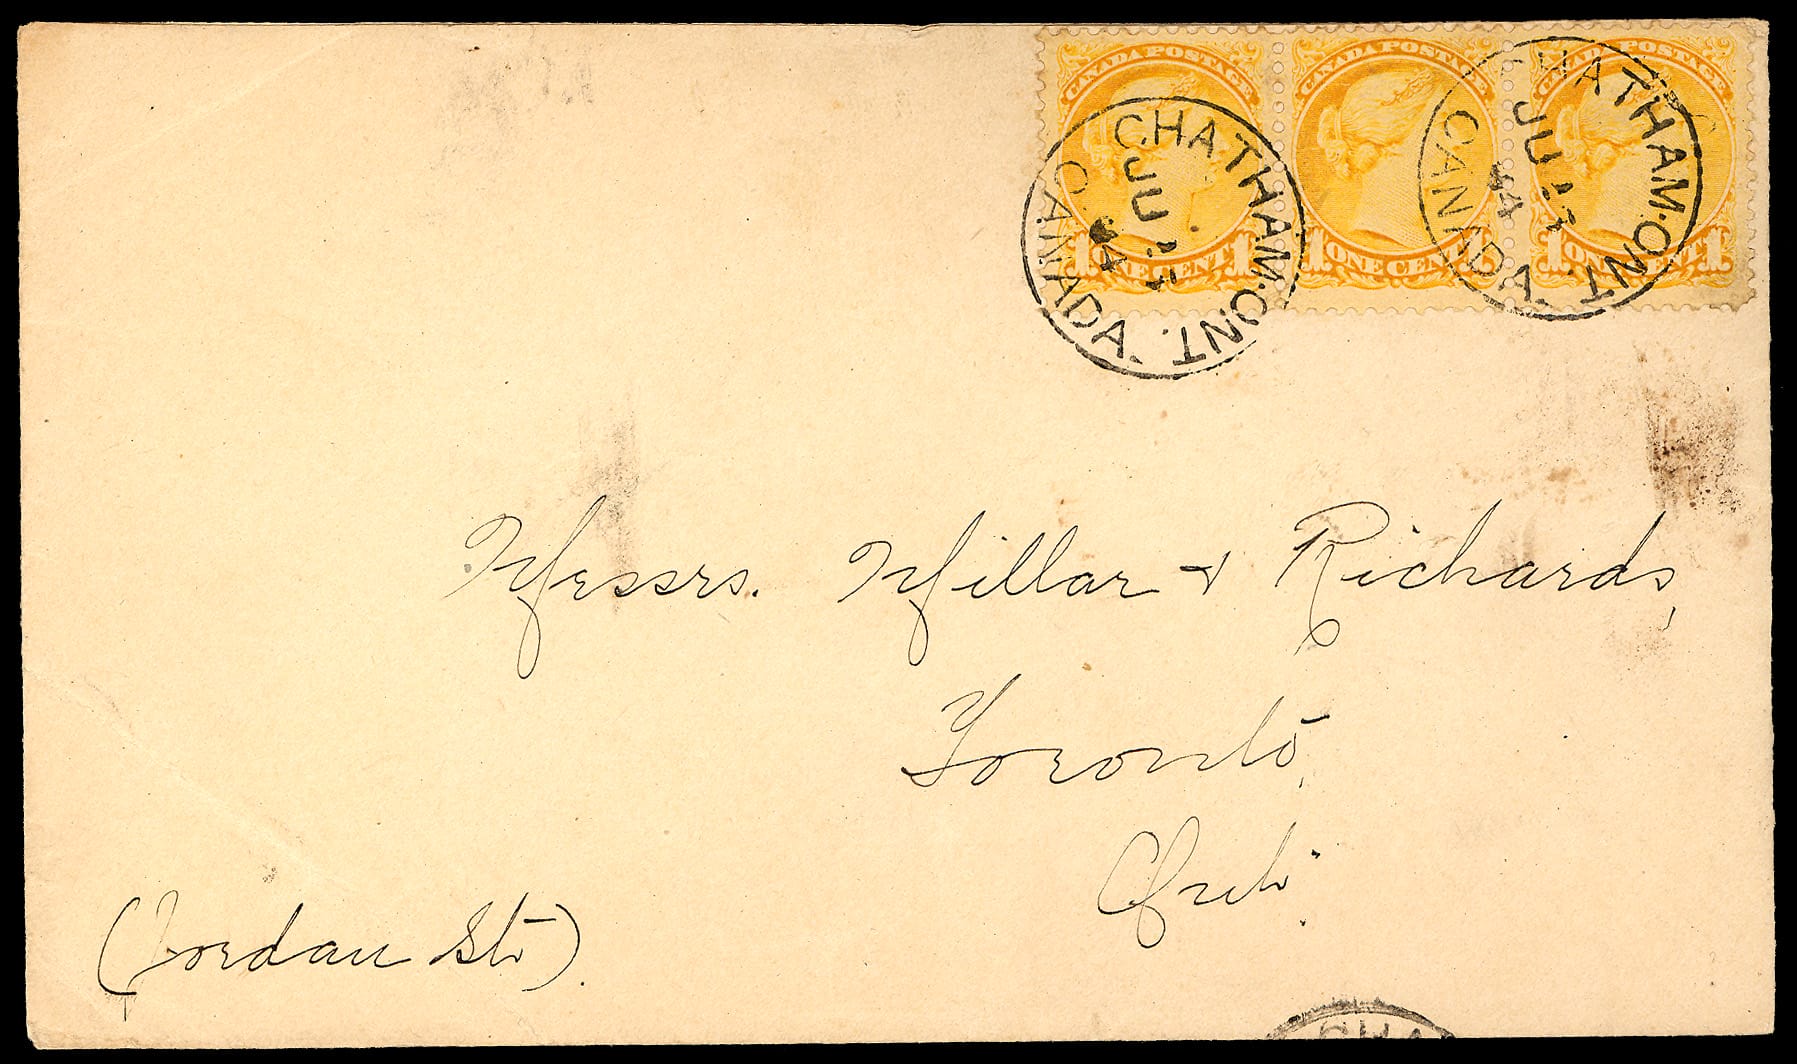 CANADA POSTAGE CANADA POSTAGE CANADA POSTAGE
1 ONE CENT 1 1 ONE CENT 1 1 ONE CENT 1
CHATHAM·ONT. CANADA.
JU
94
CHATHAM·ONT. CANADA.
JU
94
Messrs. Millar & Richards,
Toronto,
Ont.
(Jordan St.)
CHA